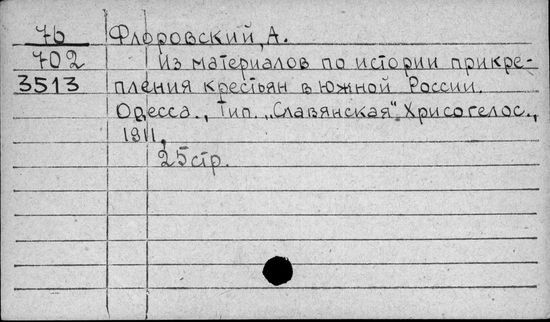 76 Флоровский, А.
702 Из материалов по истории прикре-
3513 пления крестьян в южной России.
Одесса., Тип. „Славянская" Хрисогелос.,
1911,
25стр.